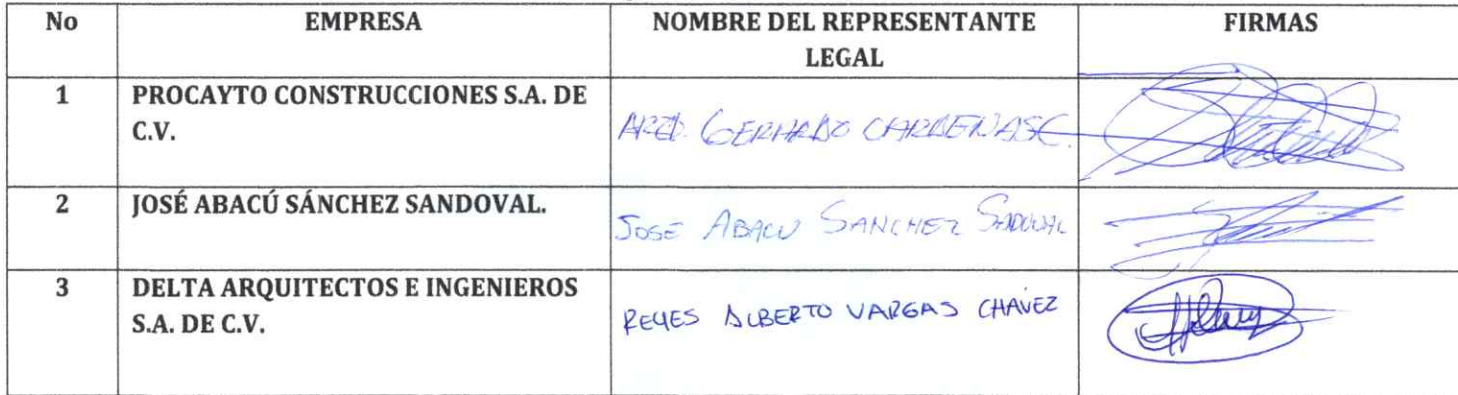 No EMPRESA NOMBRE DEL REPRESENTANTE LEGAL FIRMAS
1 PROCAYTO CONSTRUCCIONES S.A. DE
C.V.
ARQ. GERARDO CARDENAS C.
2 JOSÉ ABACÚ SÁNCHEZ SANDOVAL.
JOSE ABACU SANCHEZ SANDOVAL
3 DELTA ARQUITECTOS E INGENIEROS
S.A. DE C.V.
REYES ALBERTO VARGAS CHAVEZ